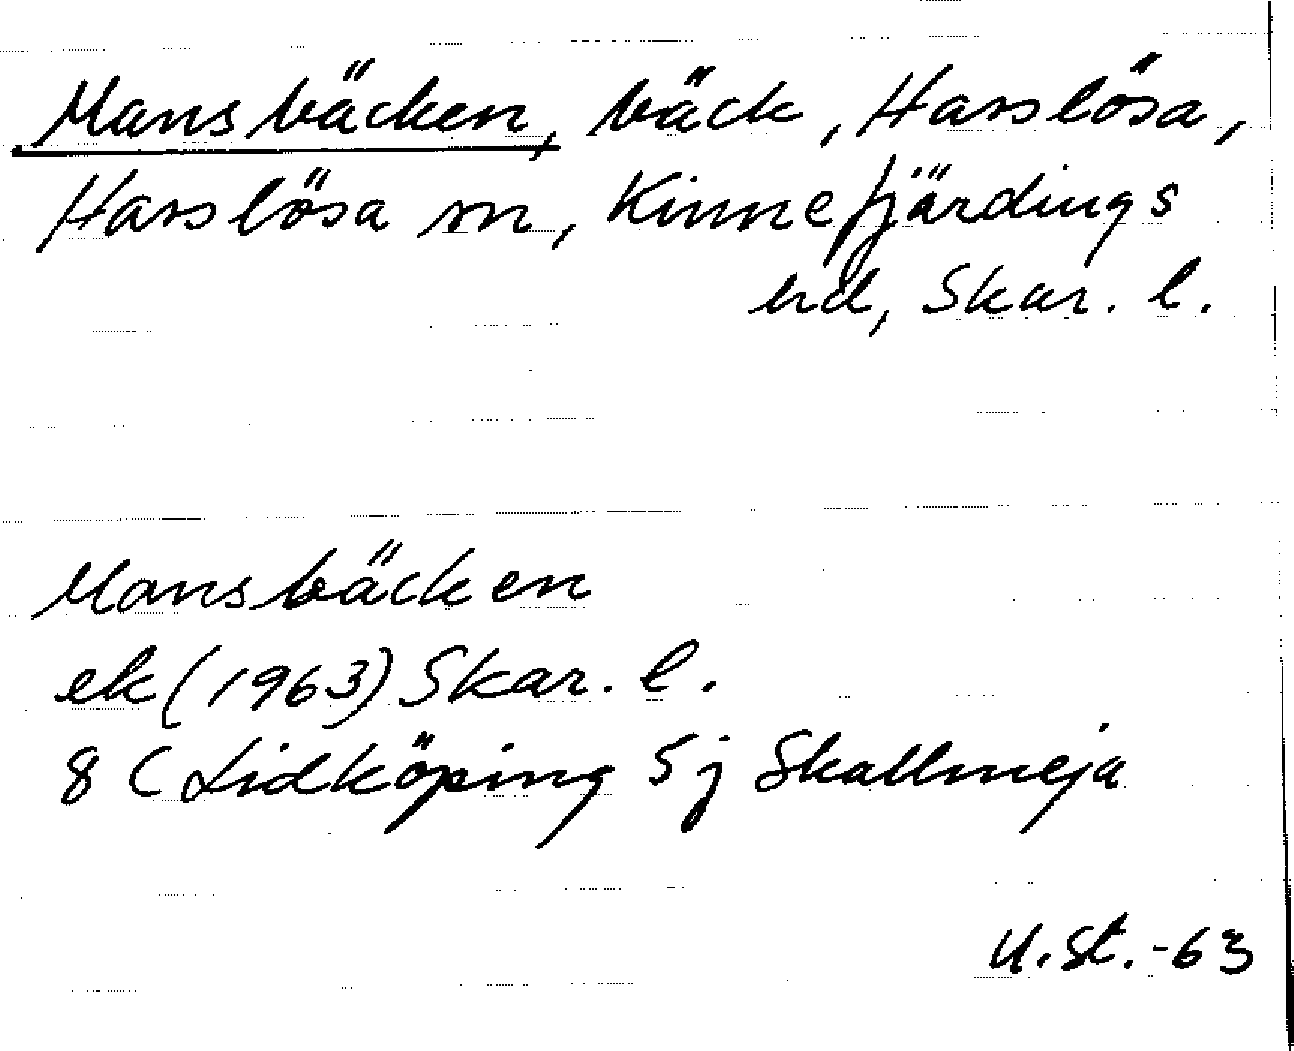 Mansbäcken, bäck, Hasslösa,
Hasslösa sn, Kinnefjärdings
hd, Skar. l.
Mansbäcken
ek (1963) Skar. l.
8 C Lidköping 5 j Skallmeja
U. St. -63